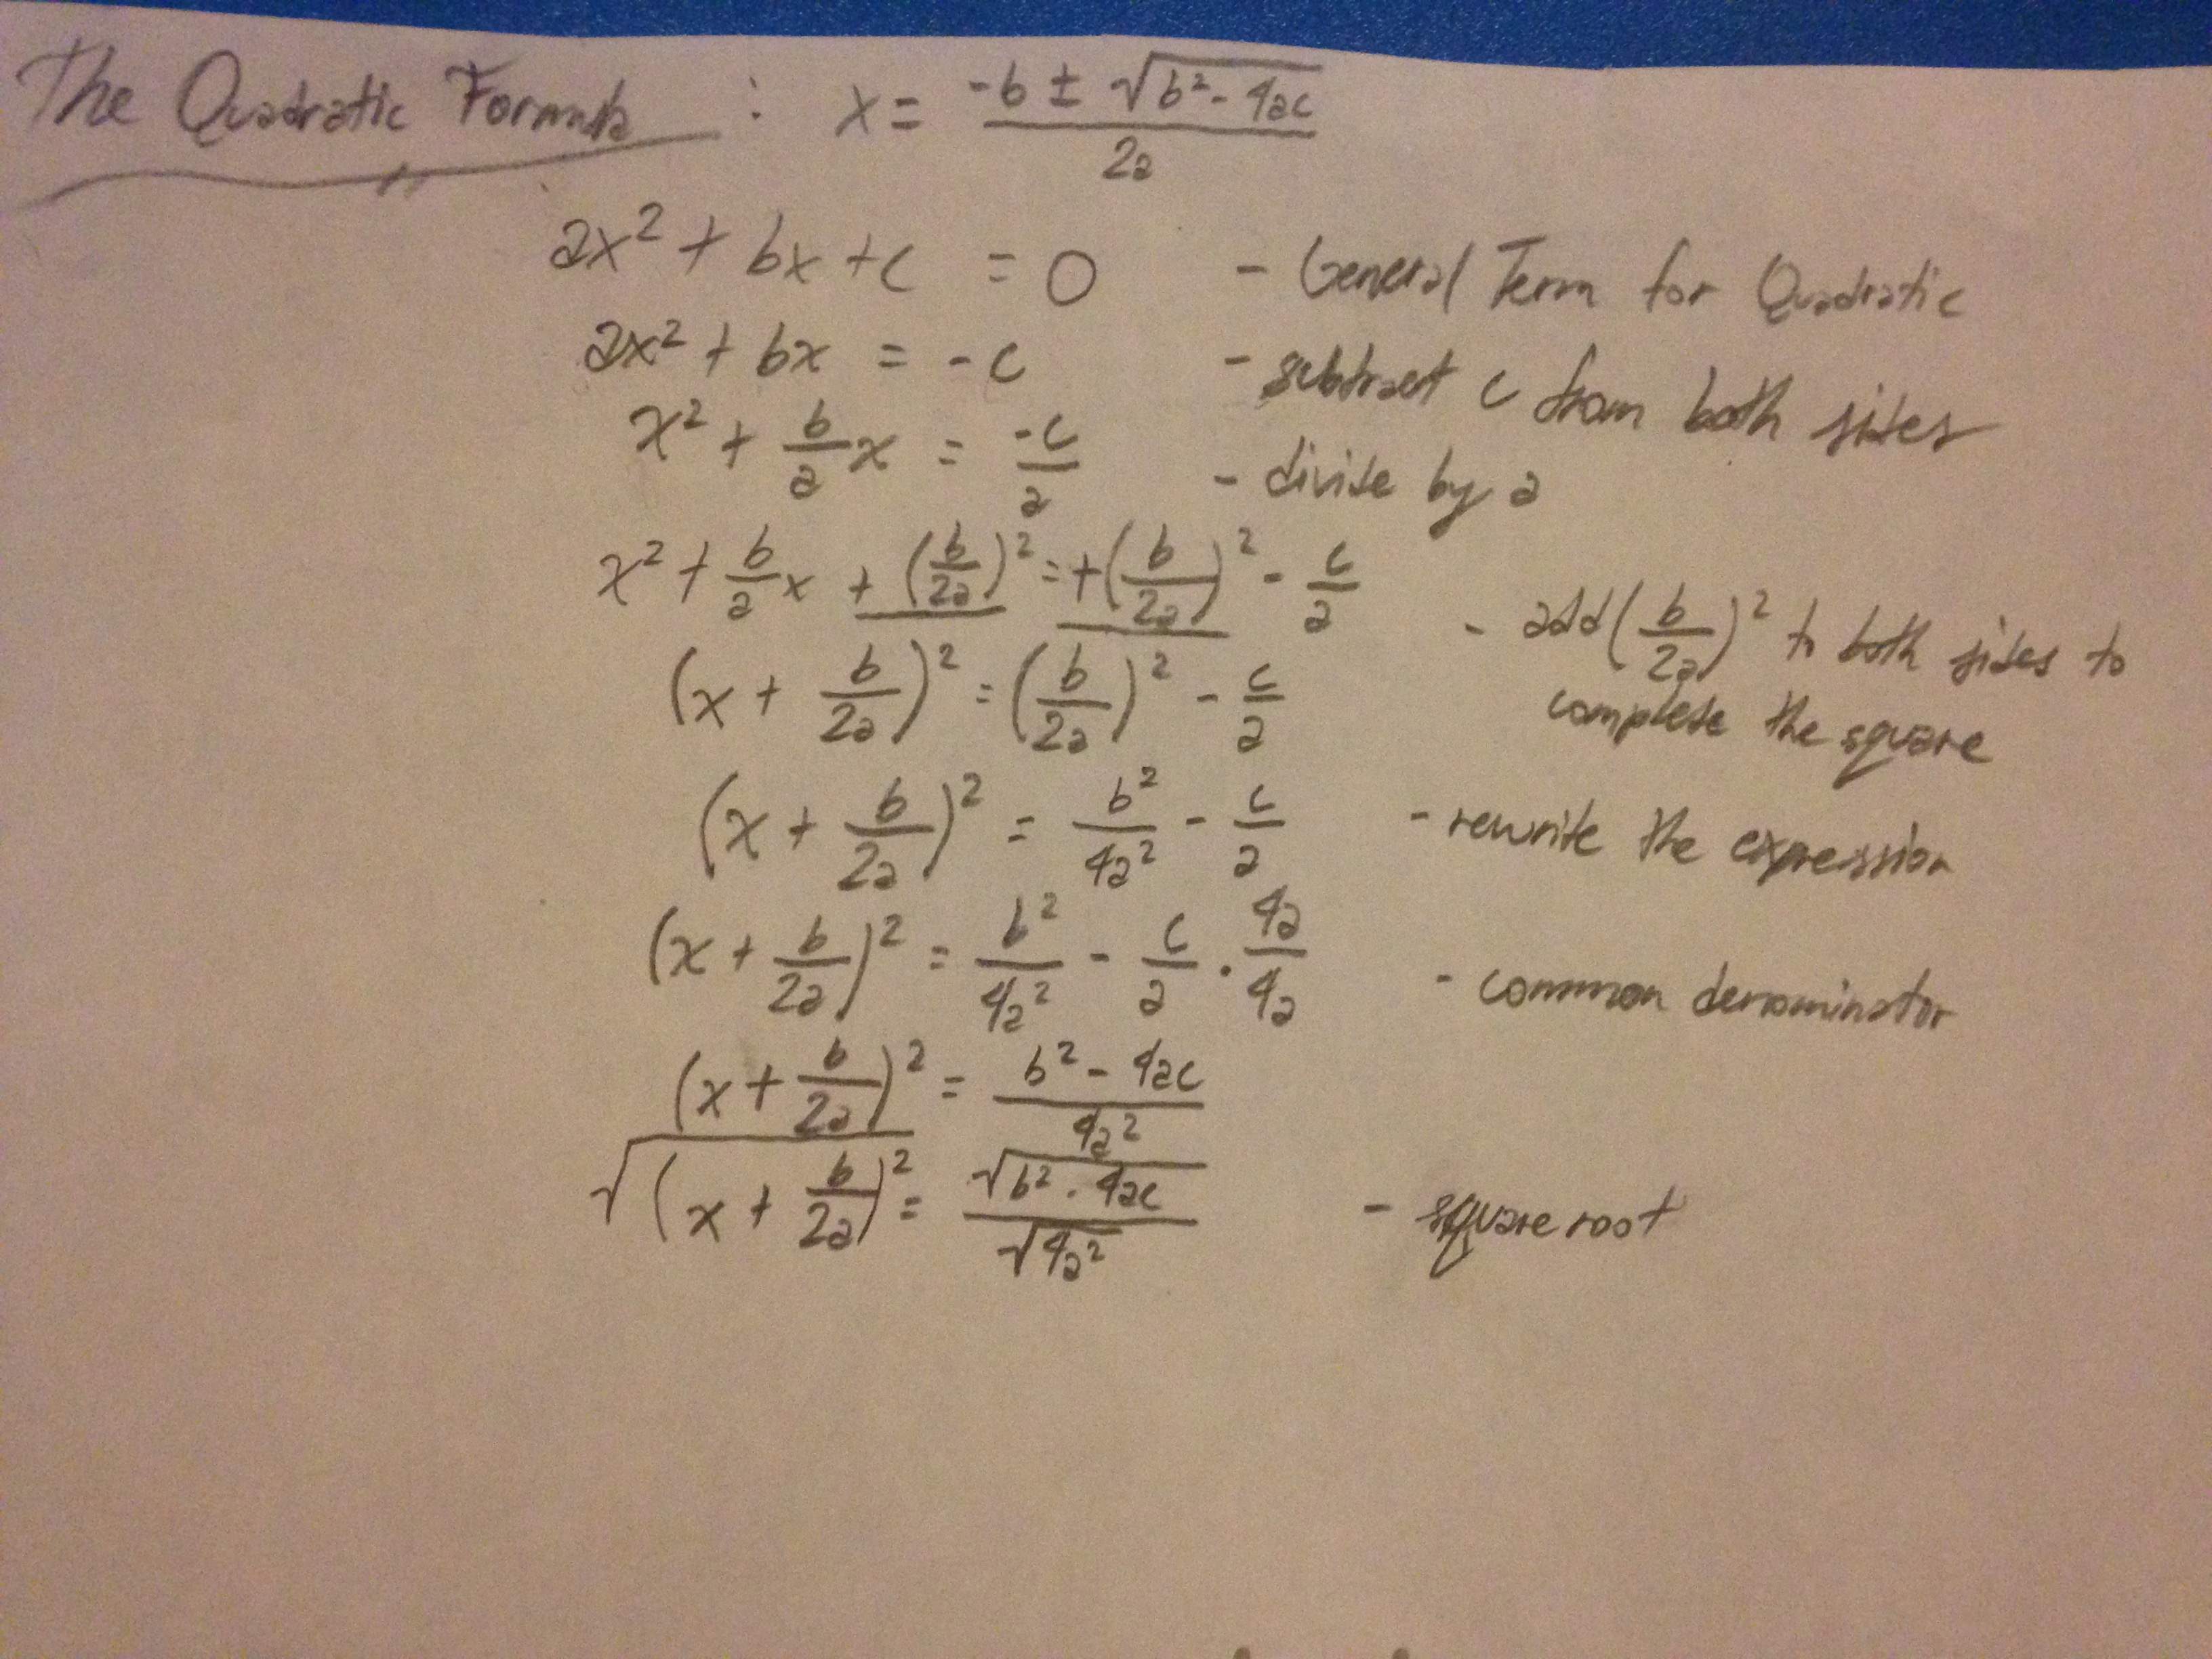 The Quadratic Formula : x = (-b ± √(b² - 4ac)) / 2a
ax² + bx + c = 0 - General Term for Quadratic
ax² + bx = -c - subtract c from both sides
x² + b/a x = -c/a - divide by a
x² + b/a x + (b/2a)² = +(b/2a)² - c/a - add (b/2a)² to both sides to
complete the square
(x + b/2a)² = (b/2a)² - c/a
(x + b/2a)² = b²/4a² - c/a - rewrite the expression
(x + b/2a)² = b²/4a² - c/a · 4a/4a - common denominator
(x + b/2a)² = (b² - 4ac)/4a²
√(x + b/2a)² = √(b² - 4ac) / √(4a²) - square root